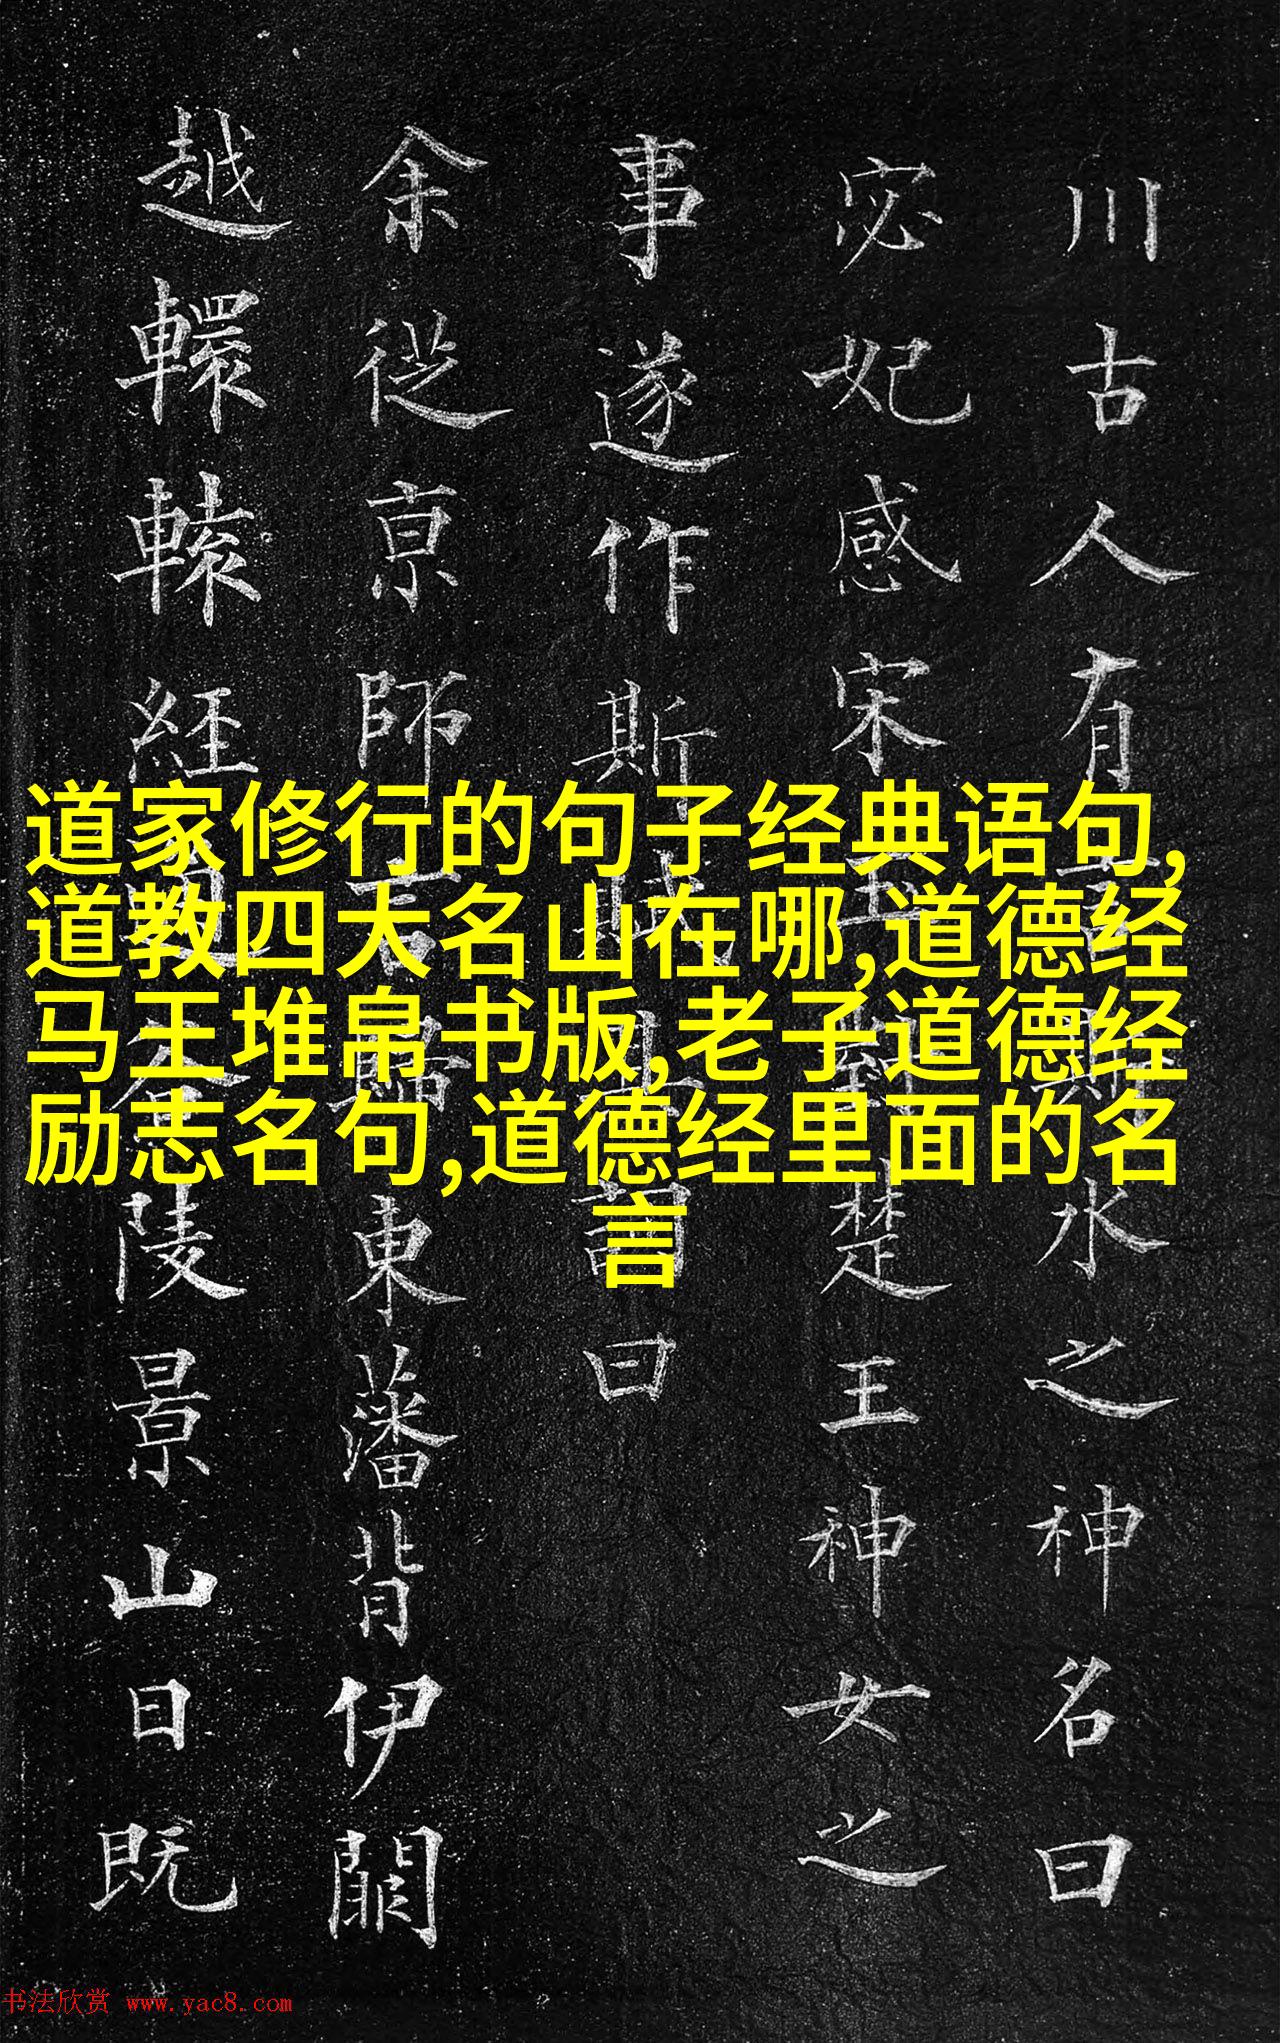 川古人有言斯水之神名曰
宓妃感宋玉對楚王神女之
事遂作斯賦其詞曰
余從亰師言歸東藩背伊闕
越轘轅經通谷陵景山日既
道家修行的句子经典语句,
道教四大名山在哪,道德经
马王堆帛书版,老子道德经
励志名句,道德经里面的名
言
书法欣赏 www.yac8.com